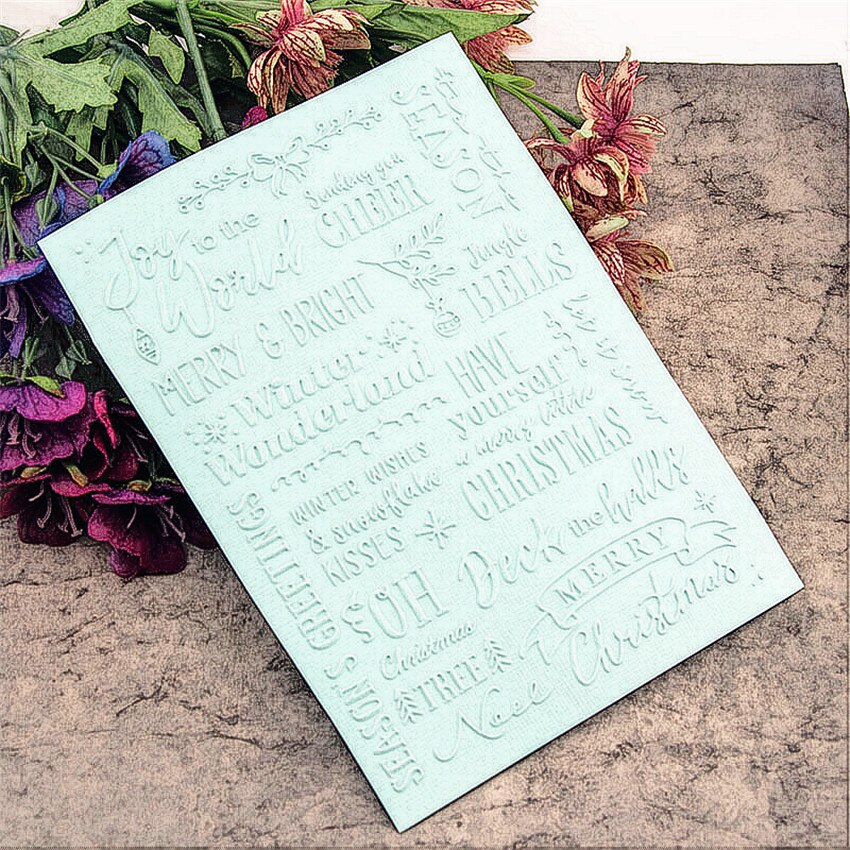 SEASON
Sending you
CHEER
Joy to the
World
Jingle
BELLS
MERRY & BRIGHT
Winter
Wonderland
HAVE
yourself
a merry little
CHRISTMAS
let it snow
WINTER WISHES
& snowflake
KISSES
Deck the halls
OH
Christmas
TREE
MERRY
Christmas
Noel
SEASON'S GREETINGS